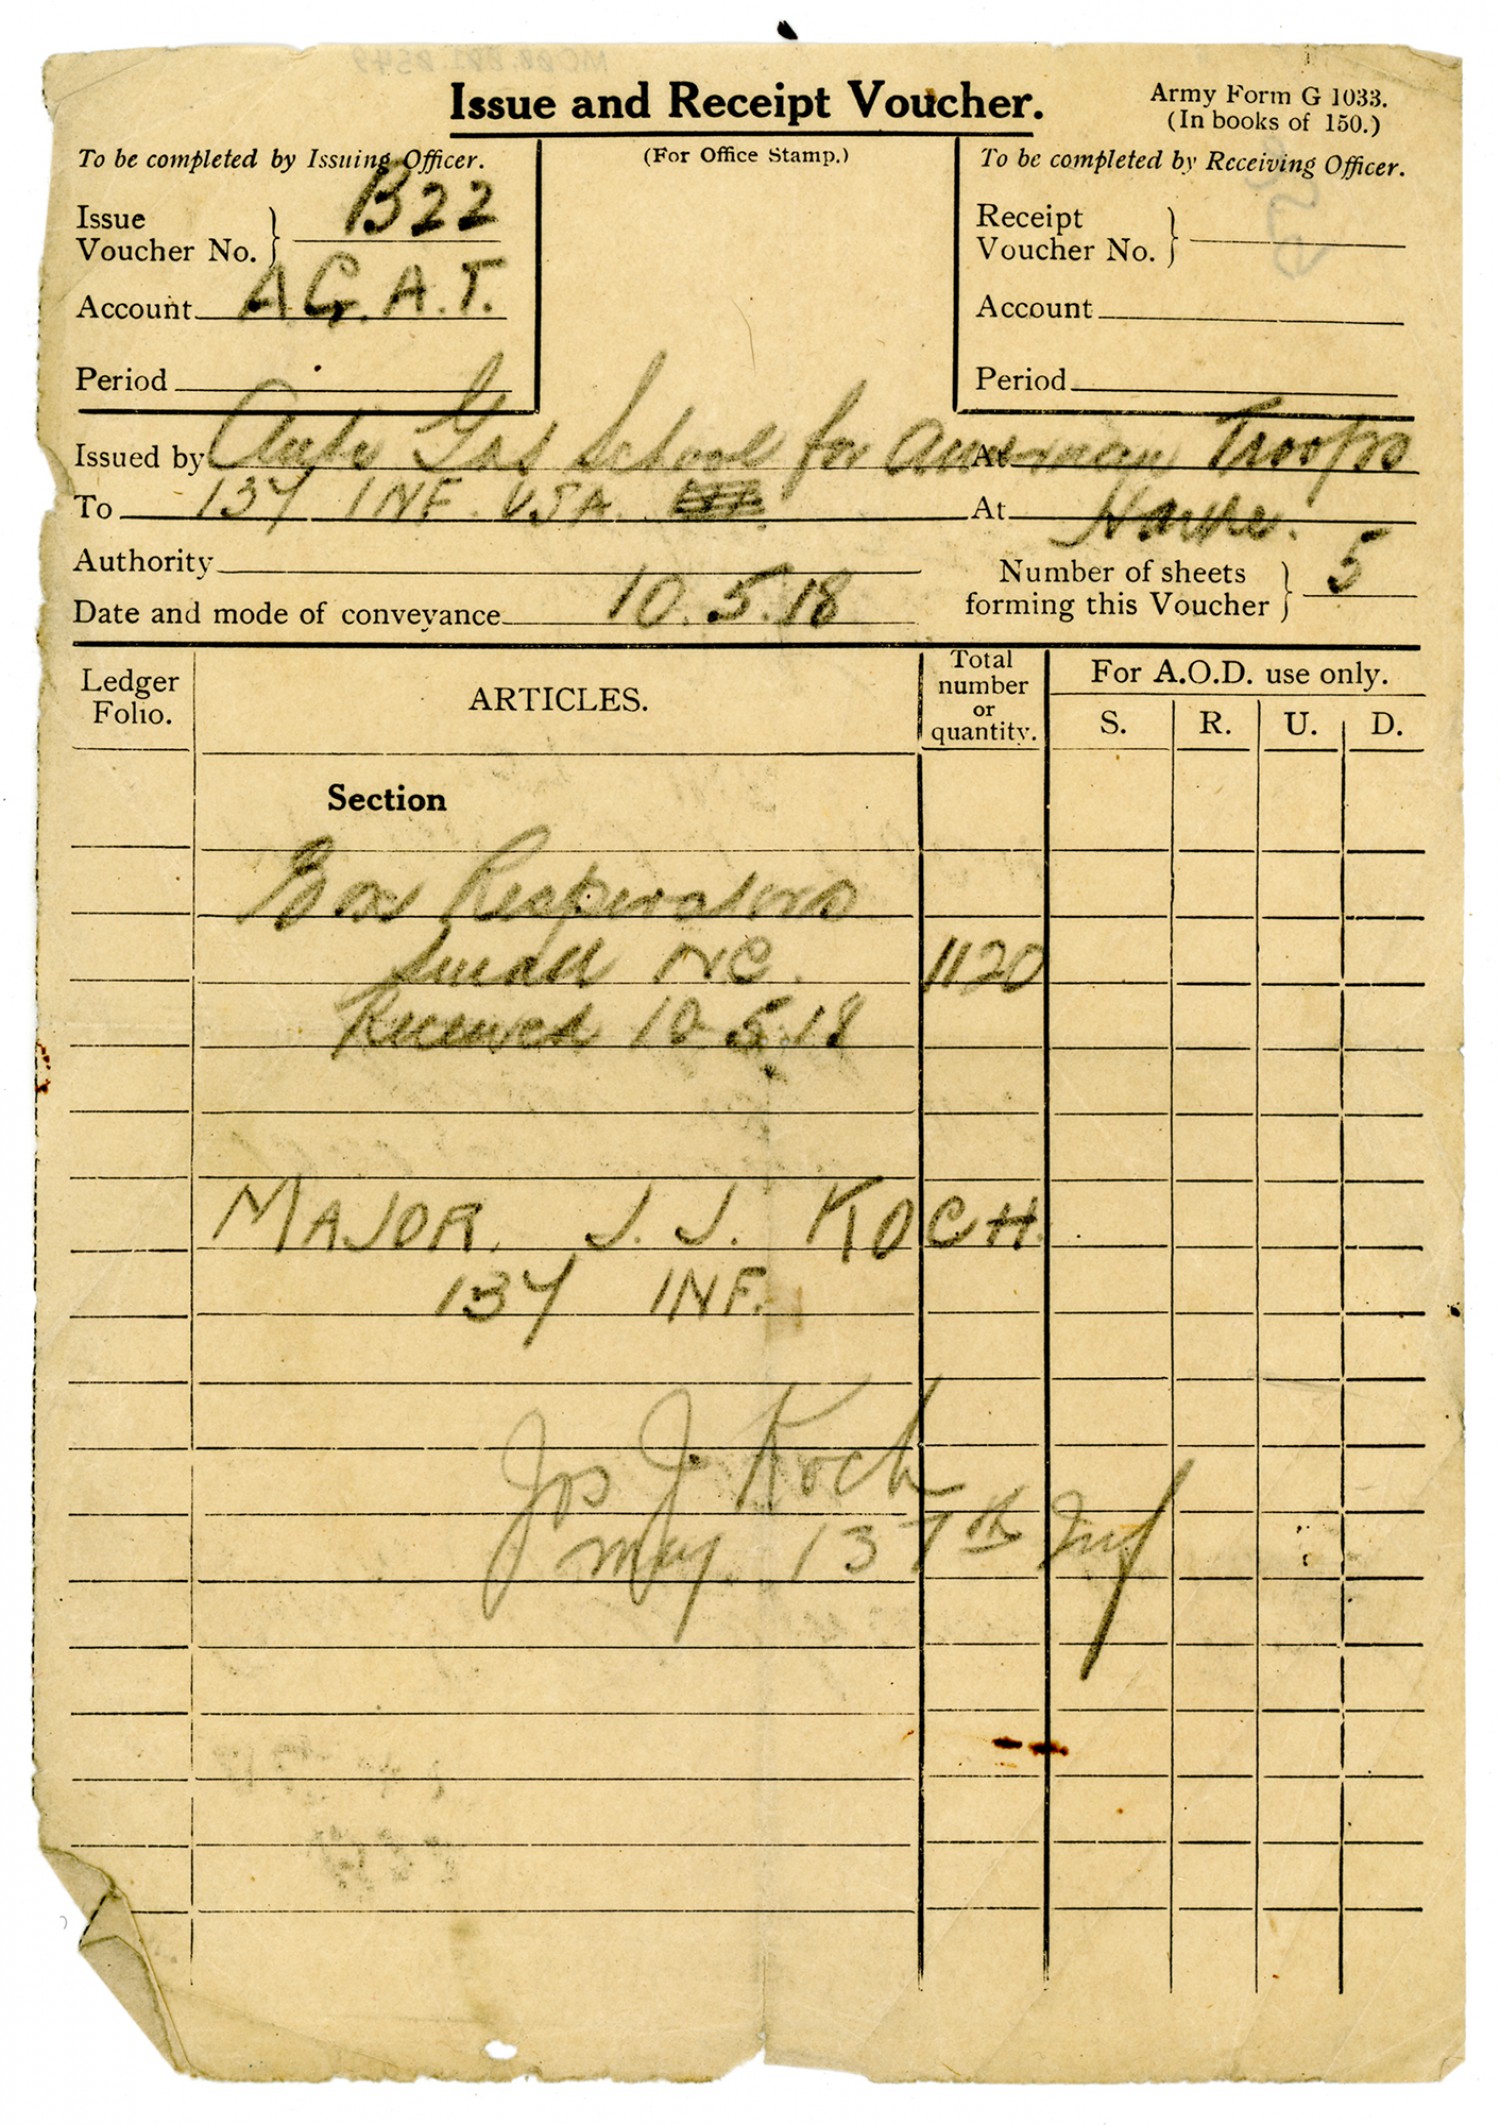 Issue and Receipt Voucher.
Army Form G 1033.
(In books of 150.)
To be completed by Issuing Officer.
(For Office Stamp.)
To be completed by Receiving Officer.
Issue
Voucher No. B22
Receipt
Voucher No.
Account A.G.A.T.
Account
Period
Period
Issued by Anti Gas School for American Troops
At
To 137 INF. USA.
At Havre.
Authority
Number of sheets
forming this Voucher 5
Date and mode of conveyance 10.5.18
Ledger
Folio.
ARTICLES.
Total
number
or
quantity.
For A.O.D. use only.
S. R. U. D.
Section
Box Respirators
Small NC. 1120
Received 10.5.18
MAJOR. J. J. KOCH.
137 INF.
Jos J. Koch
Maj. 137th Inf